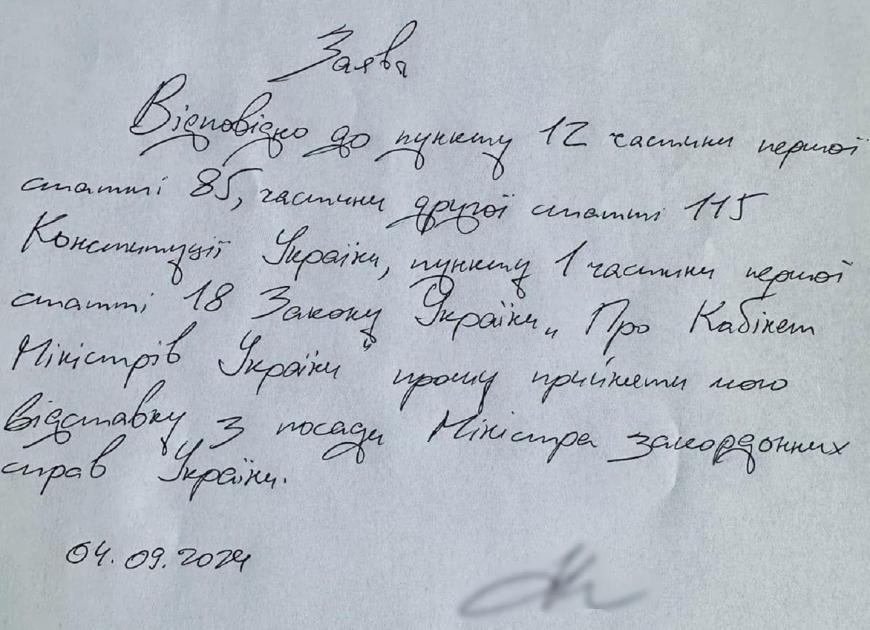 Заява
Відповідно до пункту 12 частини першої
статті 85, частини другої статті 115
Конституції України, пункту 1 частини першої
статті 18 Закону України „Про Кабінет
Міністрів України" прошу прийняти мою
відставку з посади Міністра закордонних
справ України.
04.09.2024